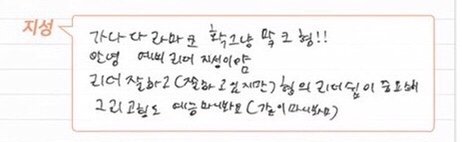 지성
가나다라마크 확그냥 막크형!!
안녕 예비리더 지성이얌
리더잘하고(잘하고있지만) 형의 리더쉽이 중요해
그리고형도 예능마니봐요 (같이마니봐요)